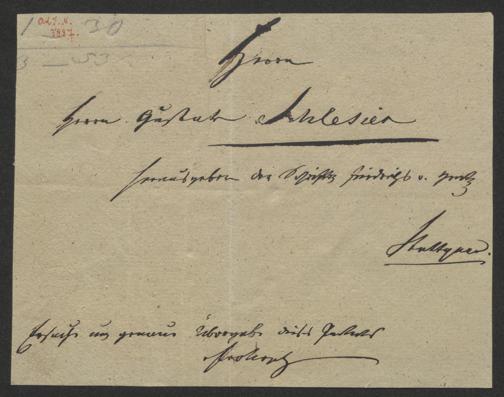 1 — 30
3 — 53
Herrn
Herrn Gustav Schlesier
Herausgeber der Schriften Friedrichs v. Gentz
Stuttgart.
Ersuche um genaue Übergabe dieses Packets